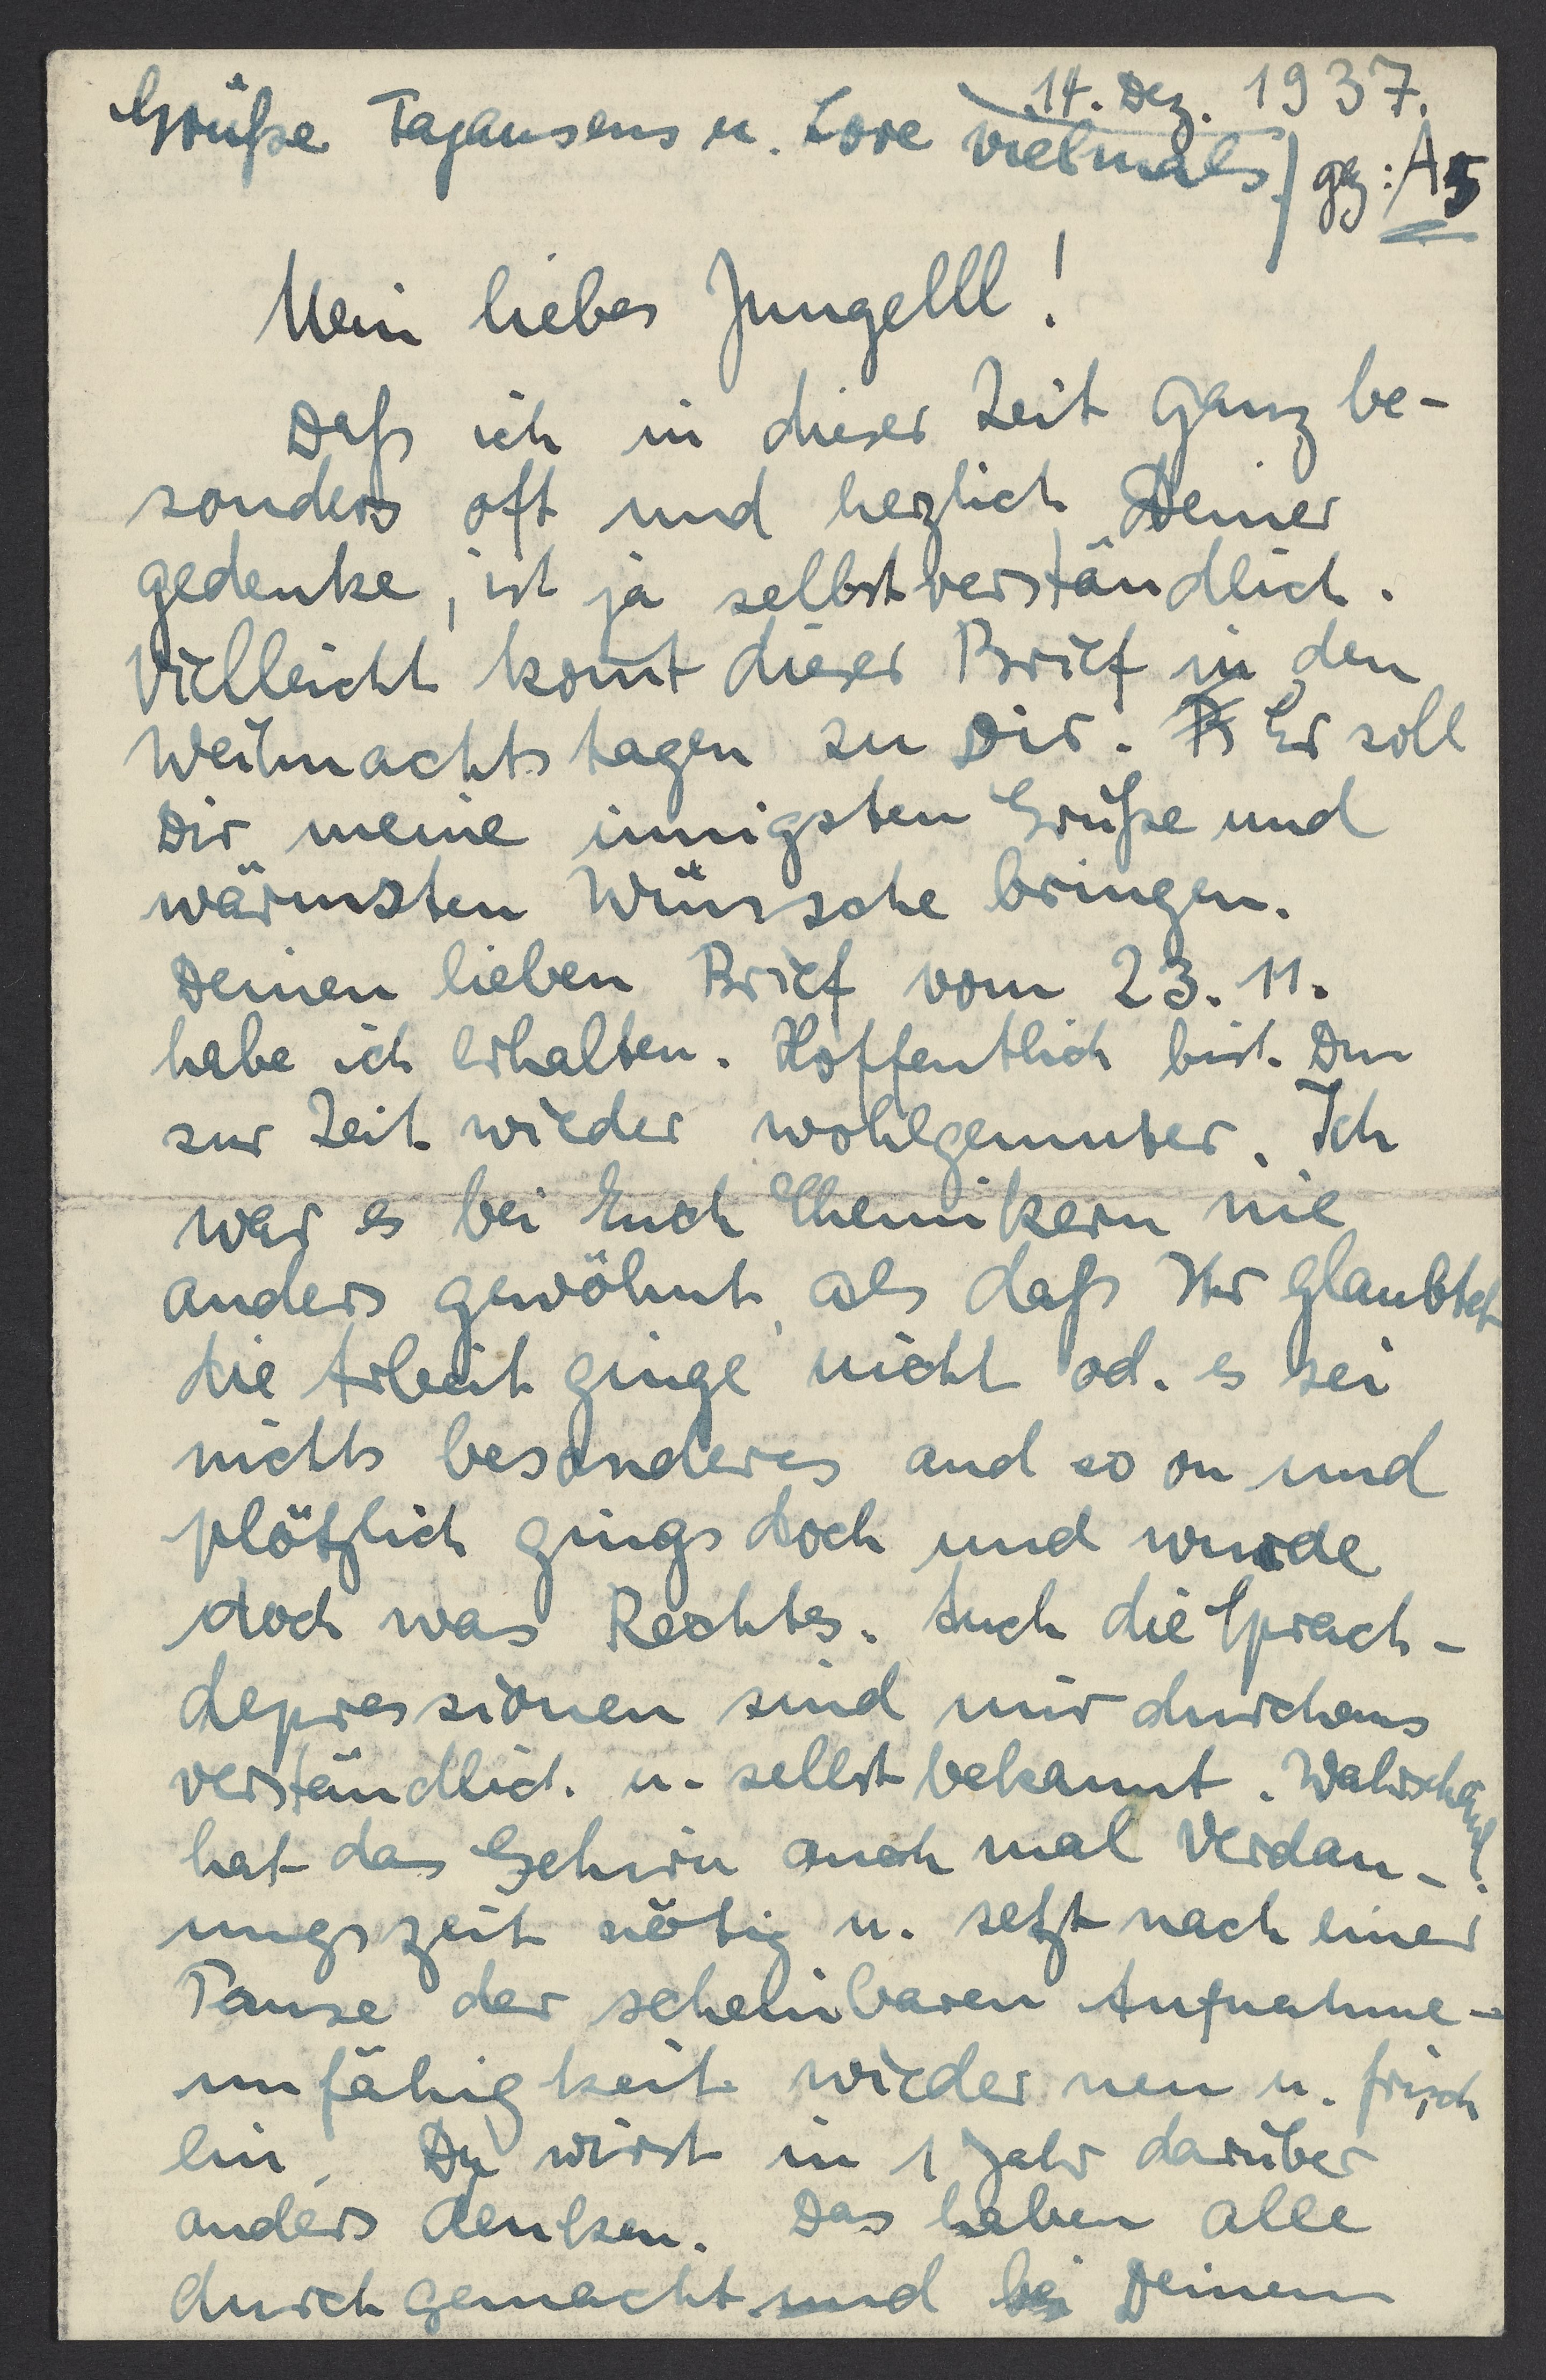 14. Dez. 1937.
Grüße Tajansens u. Lore vielmals
gez: A5
Mein liebes Jungelll!
Daß ich in dieser Zeit ganz be-
sonders oft und herzlich Deiner
gedenke, ist ja selbstverständlich.
Vielleicht komt dieser Brief in den
Weihnachtstagen zu Dir. Er soll
Dir meine innigsten Grüße und
wärmsten Wünsche bringen.
Deinen lieben Brief vom 23. 11.
habe ich erhalten. Hoffentlich bist Du
zur Zeit wieder wohlgemuter. Ich
war es bei Euch Chemikern nie
anders gewöhnt, als daß Ihr glaubtet
die Arbeit ginge nicht od. es sei
nichts besonderes and so on und
plötzlich gings doch und wurde
doch was Rechtes. Auch die Sprach-
depressionen sind mir durchaus
verständlich u. selbst bekannt. Wahrscheinl.
hat das Gehirn auch mal Verdau-
ungszeit nötig u. setzt nach einer
Pause der scheinbaren Aufnahme-
unfähigkeit wieder neu u. frisch
ein. Du wirst in 1 Jahr darüber
anders denken. Das haben alle
durchgemacht und bei Deinem